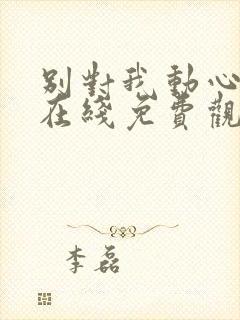 别對我動心
在綫免費觀
李磊